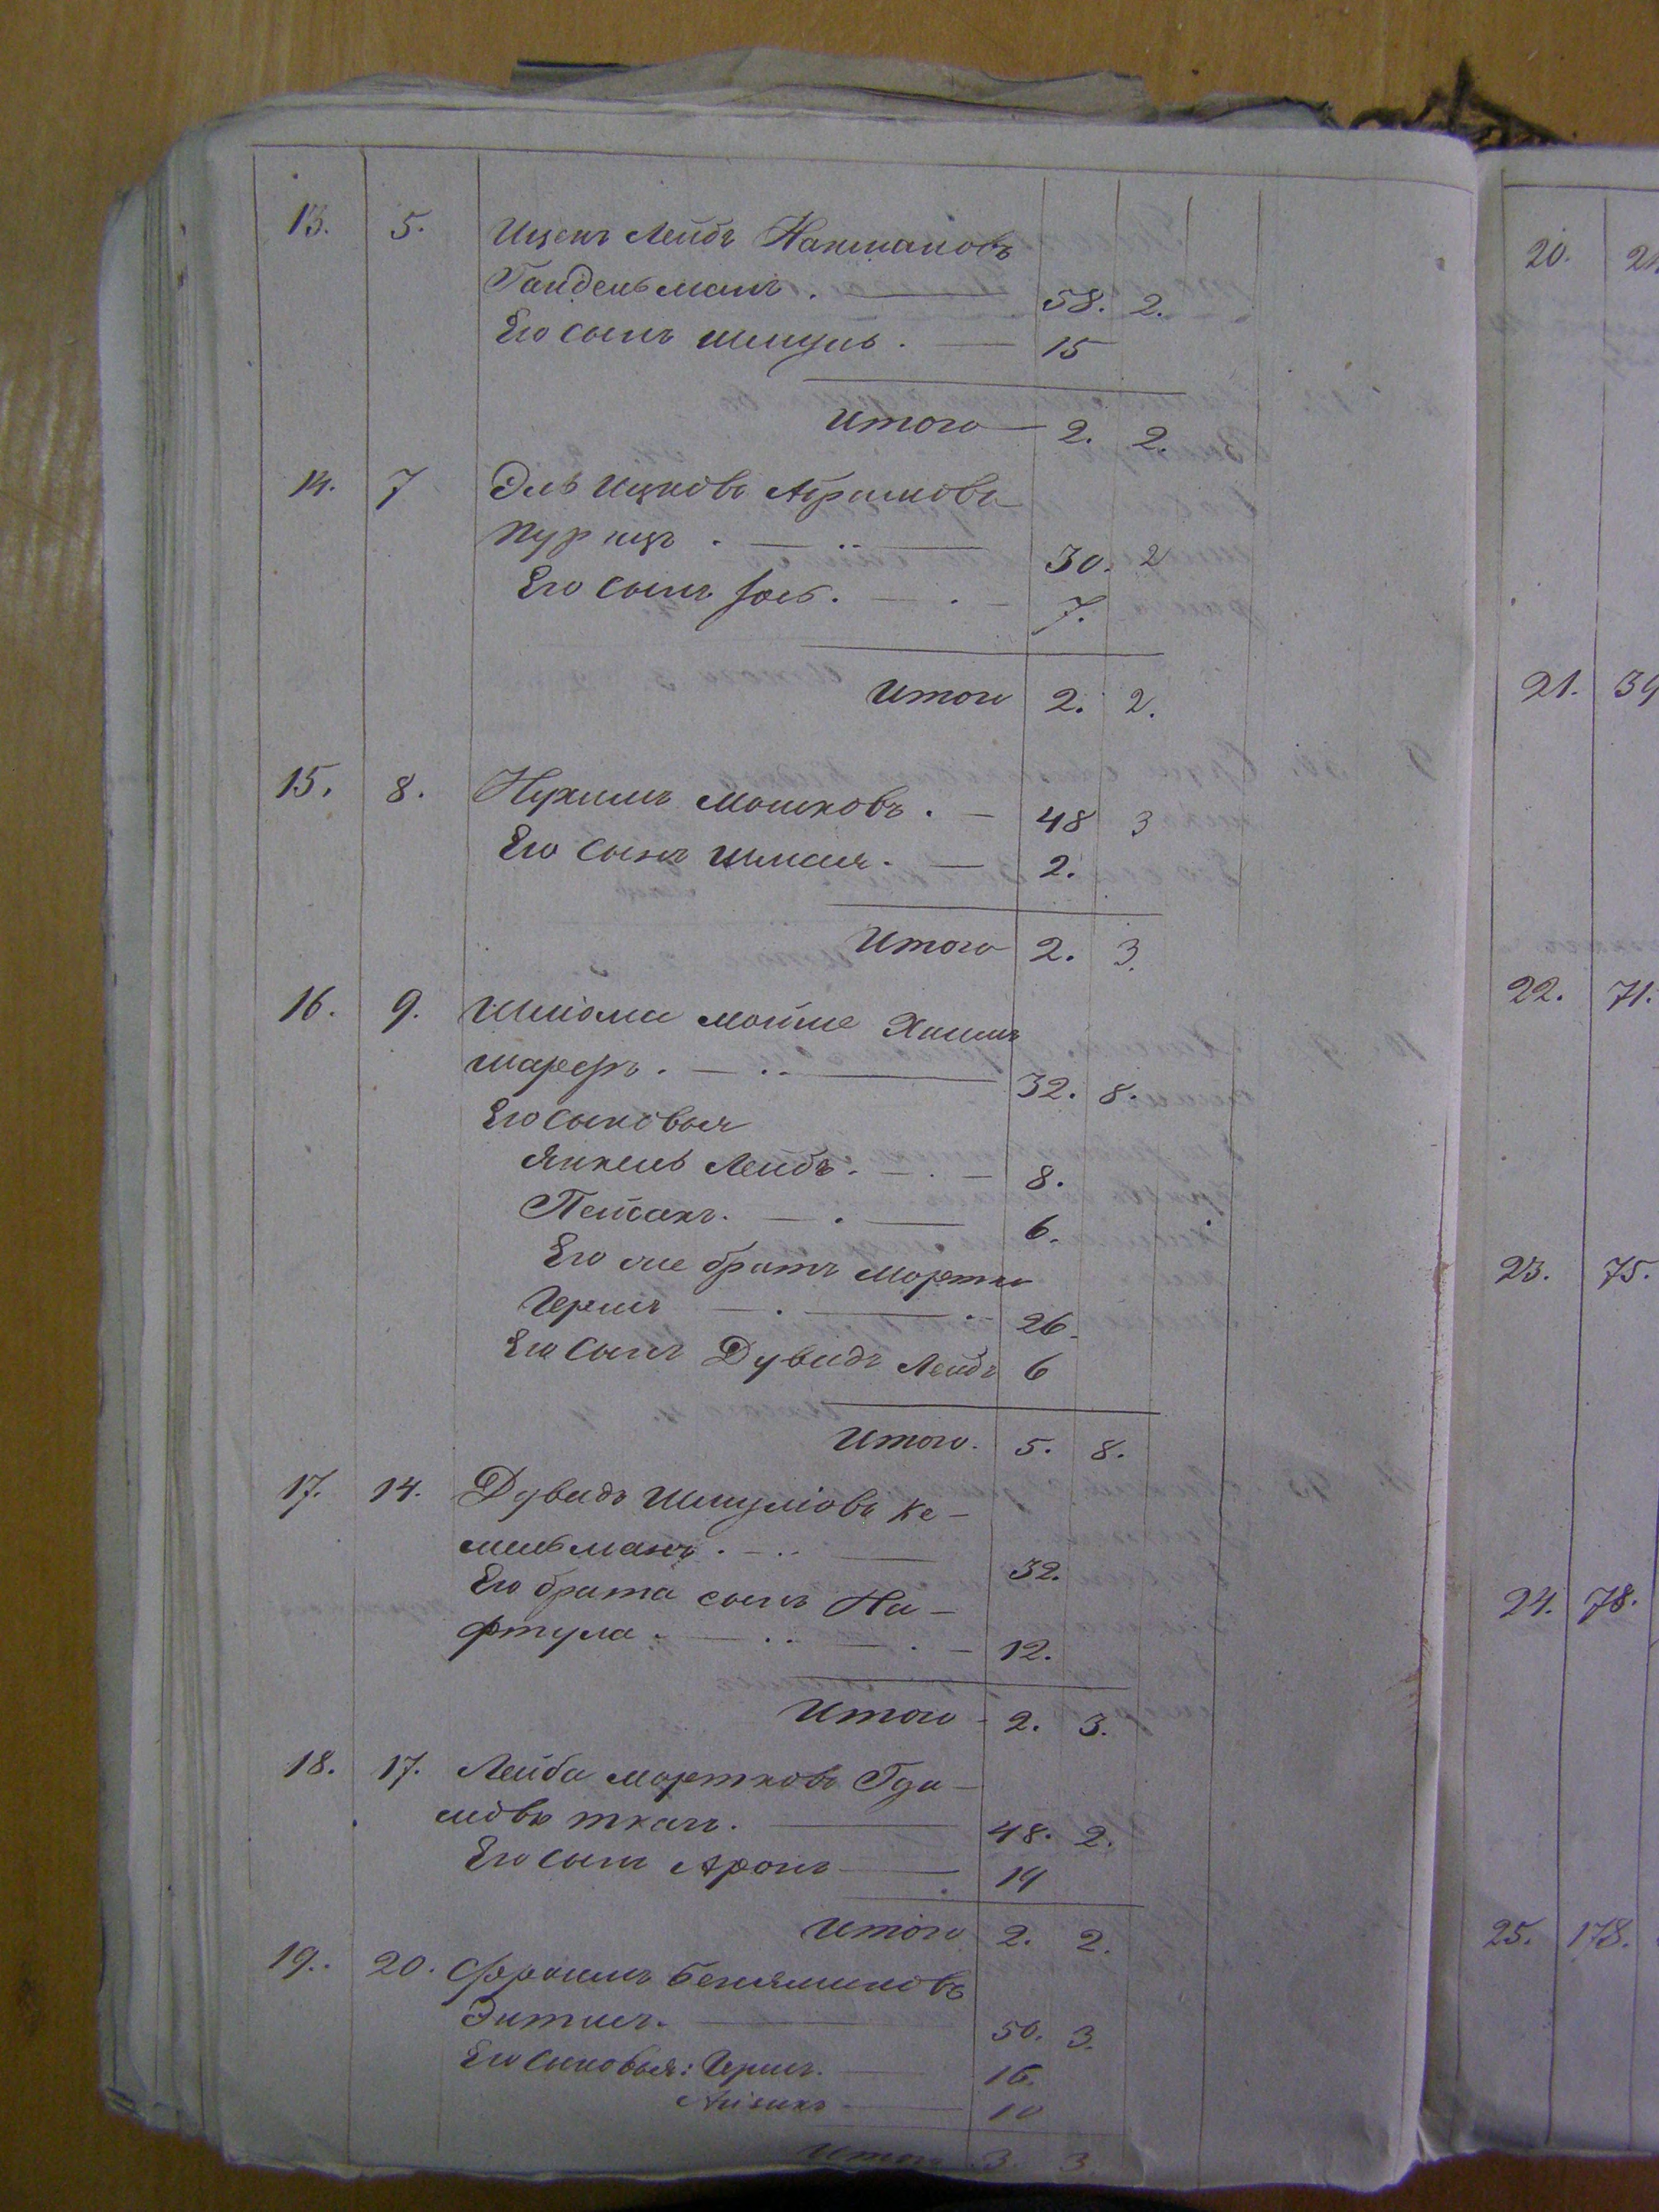 13. 5. Ицекъ Лейбъ Нахмановъ
Гандельманъ. — 58. 2.
Его сынъ Шмуль. — 15
Итого — 2. 2.
14. 7 Эль Ицковъ Абрамовъ
Пурицъ . — .. — 30. 2
Его сынъ Іось. — . — 7.
Итого 2. 2.
15. 8. Нухимъ Мошковъ. — 48 3
Его сынъ Шмая. — 2.
Итого 2. 3.
16. 9. Шліома Мойше Хаимъ
Шареръ. — .. — 32. 8.
Его сыновья
Янкель Лейбъ. — . — 8.
Пейсахъ. — . — 6.
Его же братъ Мортко
Гершъ — . — .. 26.
Его сынъ Дувидъ Лейбъ 6
Итого. 5. 8.
17. 14. Дувидъ Шмуліовъ Ке-
мельманъ. — .. — 32.
Его брата сынъ На-
фтула. — .. — . — 12.
Итого - 2. 3.
18. 17. Лейба Мортковъ Гда-
ліовъ Ткачъ. — 48. 2.
Его сынъ Аронъ — 19
Итого 2. 2.
19.. 20. Фроимъ Беняминовъ
Энтинъ. — 50. 3.
Его сыновья: Гершъ. — 16.
Айзикъ — 10
Итого 3. 3.
20. 2
21. 39
22. 71.
23. 75.
24. 78.
25. 178.